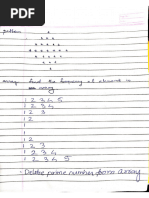 pattern
array. find the frequency of element in
an array
1 2 3 4 5
1 2 3 4
1 2 3
1 2
1
1
1 2
1 2 3
1 2 3 4
1 2 3 4 5
Delete prime number from array